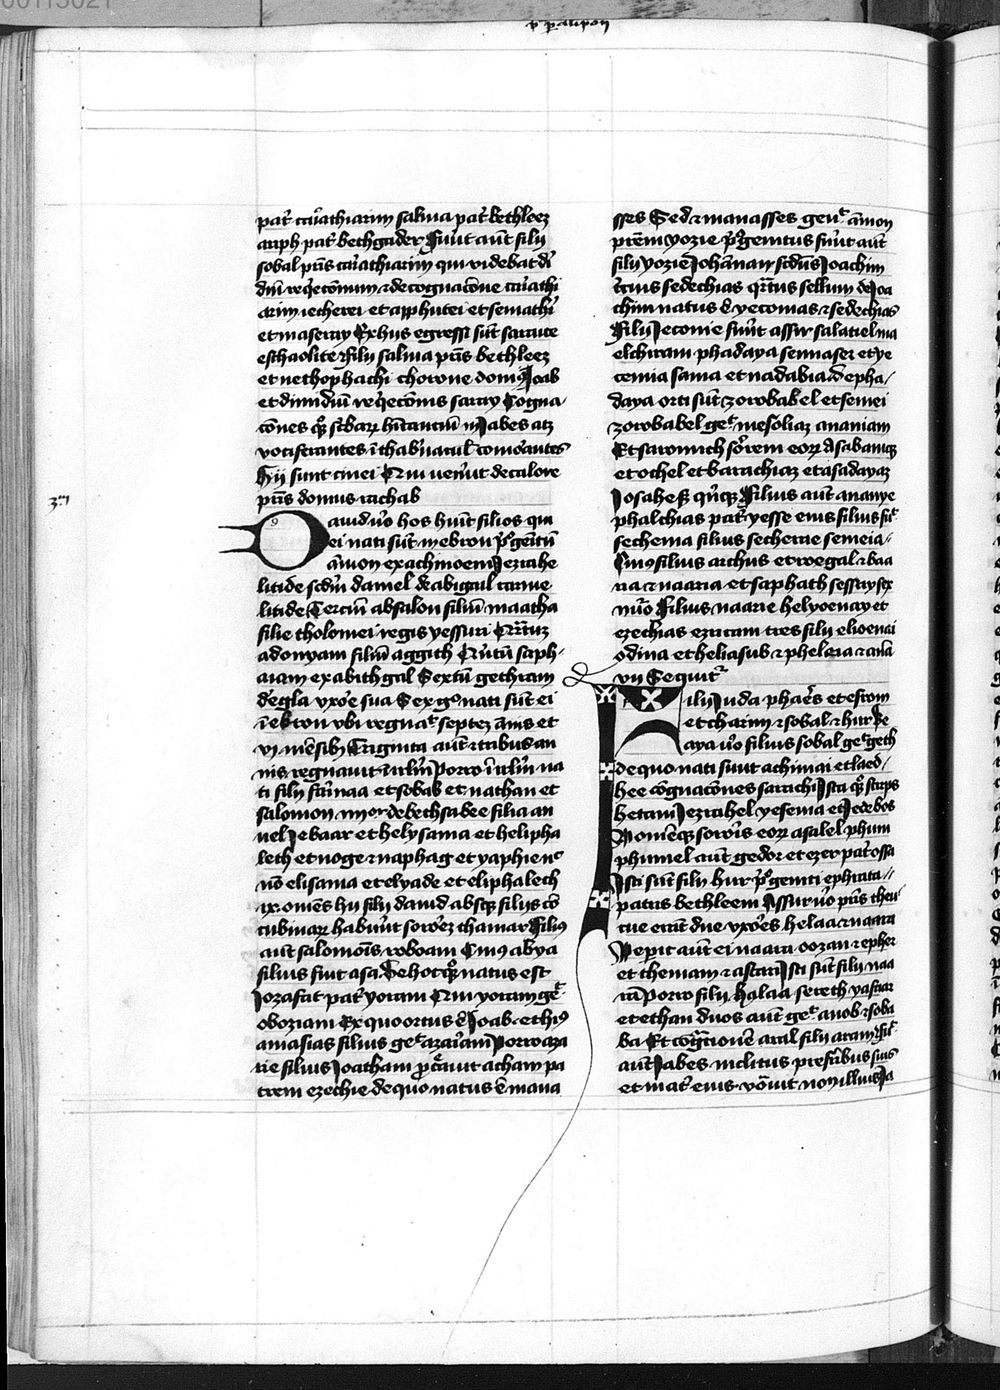 p paralipon
pat̄ cariathiarim salma pat̄ bethleez
ariph pat̄ bethgader Fuer̄t aūt filij
sobal pris cariathiarim qui videbat di
diū reqetionum ⁊ de cognac̄one cariathi
arim ietherei et apphutei et semathi
et maseray Ex hus egressi sūt saraite
eschaolite Filij salma pris bethleez
et nethophachi chorone dom9 Joab
et dimidiū reqetionis saray Cogna-
c̄ones qꝫ habitantiū in Jabes atꝫ
Hij sunt cinei Qui venerūt de calore
pris domus rachab
3m
Dauid ūo hos huit filios qui
ei nati sūt in ebron p̄ogenitū
āmon ex achinoem Jezrahe
litide scd̄m daniel de abigail carme
litide Terciū absalon filiū maatha
filie tholomei regis yessuri Quartuz
adonyam filiū aggith Quintū saph-
aiam ex abithgal Sextū gethram
de egla vxore sua Sex g° nati sūt ei
ī ebron vbi regnat septez ānis et
vi mēsibꝫ Triginta aūt ⁊ tribus an
nis regnauit ī irlm̄ Porro ī irlm̄ na
ti filij samaa et sobab et nathan et
salomon iiiior de bethsabee filia an
uel Jebaar et helysama et helipha
leth et noge ⁊ naphag et yaphie nc̄
nō elisama et elyade et eliphalech
ix omēs hij filij dauid absqꝫ filijs cō
cubinarꝝ habuerūt sorōez thamar Filius
aūt salomōis roboam Cui9 abya
filius fuit asa De hoc qꝫ natus est
Jozafat pat̄ yoram Qui yoram ge
oboziam Ex quo ortus ē Joab et hi9
amasias filius get azariam Porro aza
rie filius Joatham p̄creauit acham pa
trem ezechie de quo natus ē mana
sses Sed ⁊ manasses genut āmon
prēm yozie P̄ogenitus fuit aūt
filij yozie Johānan scdūs Joachim
tcius sedechias qrtus sellum de Joa
chim natus ē yeconias ⁊ sedechias
Filij Jeconie fuerūt assir salatiel ma
elchiram phadaya sennaser et ye
cenna sama et nadabia de pha-
daya orti sūt zorobabel et semei
zorobabel get mesollaz ananiam
Et saromith sorōrem eorꝝ Asabamqꝫ
et ochel et barachiaz et asadayaz
Josabesꝫ quiqꝫ Filius aūt ananye
phalchias pat̄ yesse eius filius fūt
sechema filius sechenie semeia-
Cui9 filius archus et roegal ⁊ baa
na ⁊ naaria et saphath sessay sex
nuō Filius naarie helyoenay et
ezechias ezricam tres filij elioenai
odina et heliasub ⁊ pheleia ⁊ ana
vij Sequitr
Filij Juda phares et esrom
et charim ⁊ sobal ⁊ hur De
aya ūo filius sobal get geth
de quo nati sunt achimai et laed-
hee cognac̄ones sarachi Ista qꝫ stirps
hetam Jezrahel yesema et Jedebos
Nomēqꝫ sororis eorꝝ asalel phum
phunuel aūt gedor et ezer pat̄ ossa
Isti sūt filij hur p̄ogeniti ephrata-
patris bethleem Assur ūo pris thecu
cue erāt due vxores helaa ⁊ naara
Peperit aūt ei naara oozan ⁊ epher
et themam ⁊ astari Isti sūt filij naa
ra Porro filij halaa sereth ysaar
et ethan duos aūt get anob ⁊ soba
ba Et cognationē aral filij aram fūt
aūt Jabes inclitus pre fribus suis
et mat̄ eius vocauit nomen illius Ja